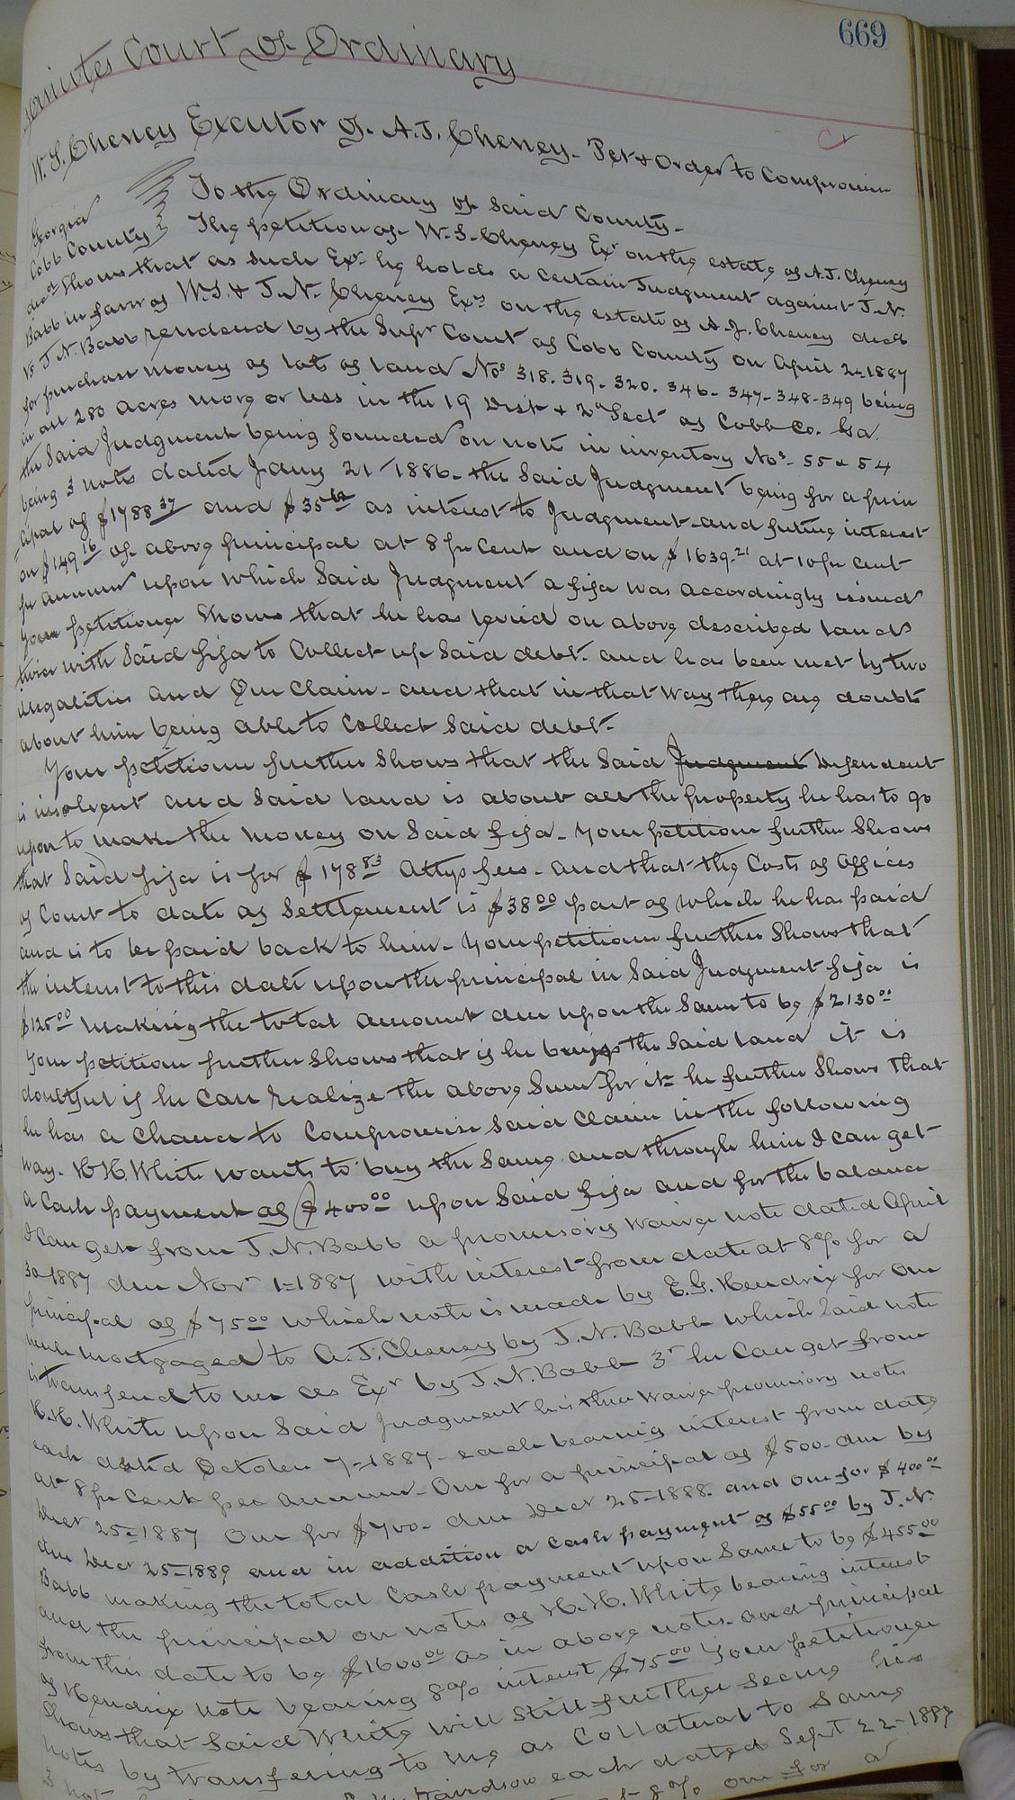 669
Minutes Court of Ordinary
W.S. Cheney Executor of A.J. Cheney - Pet & Order to Compromise
Georgia
Cobb County
To the Ordinary of Said County -
The petition of W.S. Cheney Exr on the estate of A.J. Cheney
decd Shows that as Such Exr he holds a certain Judgment against J.N.
Babb in favr of W.S. & J.N. Cheney Exrs on the estate of A.J. Cheney decd
vs J.N. Babb rendered by the Supr Court of Cobb County on April 2-1887
for purchase money of lots of land Nos 318. 319. 320. 346. 347. 348. 349 being
in all 280 acres more or less in the 19 Dist & 2d Sect of Cobb Co. Ga.
the Said Judgment being founded on note in inventory Nos 55 & 54
being 3 notes dated Jany 21/1886 - the Said Judgment being for a prin
cipal of $1788 37 and $35 as interest to Judgment and future interest
on $149 16 of above principal at 8 pr Cent and on $1639.21 at 10 pr Cent
pr annum upon which Said Judgment a fifa was accordingly issued
Your petitioner Shows that he has levied on above described lands
twice with Said fifa to Collect up Said debt. and has been met by two
illegalities and One Claim - and that in that way there are doubts
about him being able to Collect Said debt.
Your petitioner further Shows that the Said Judgment Defendent
is insolvent and Said land is about all the property he has to go
upon to make the money on Said fifa - Your petitioner further Shows
that Said fifa is for $178 83 Attys fees - and that the Costs of Officers
of Court to date of Settlement is $38 00 part of which he has paid
and is to be paid back to him - Your petitioner further Shows that
the interest to this date upon the principal in Said Judgment fifa is
$125 00 making the total amount due upon the Same to be $2130 00
Your petitioner further Shows that if he buys the Said land it is
doubtful if he Can realize the above Sum for it he further Shows that
he has a Chance to Compromise Said Claim in the following
way. H.H. White wants to buy the Same and through him I can get
a Cash payment of $400 00 upon Said fifa and for the balance
I can get from J.N. Babb a promisory waive note dated April
30-1887 due Novr 1-1887 with interest from date at 8% for a
principal of $75 00 which note is made by E.G. Hendrix for one
mule mortgaged to A.J. Cheney by J.N. Babb which Said note
is transferred to me as Exr by J.N. Babb 3r he Can get from
H.H. White upon Said Judgment his three waive promisory notes
each dated October 7-1887 - each bearing interest from date
at 8 pr Cent per annum - One for a principal of $500 - due by
Decr 25-1887 One for $700 - due Decr 25-1888. and One for $400 00
due Decr 25-1889 and in addition a Cash payment of $55 00 by J.N.
Babb making the total Cash payment upon Same to be $455 00
and the principal on notes of H.H. White bearing interest
from this date to be $1600 00 as in above notes - and principal
of Hendrix note bearing 8% interest $75 00 Your petitioner
Shows that Said White will Still further Secure his
notes by transfering to me as Collateral to Same
3 each dated Sept 22-1887
at 8% one for a